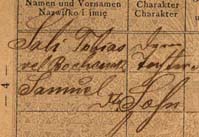 Namen und Vornamen
Nazwisko i imię
Charakter
Charakter
Sali Tobias
vel Bochand
Samuel Sohn
4